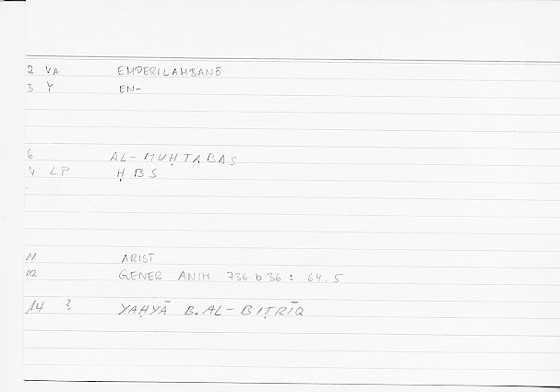 2 VA EMPERILAMBANŌ
3 Y EN-
6 AL-MUḤTABAS
LP ḤBS
11 ARIST
12 GENER ANIM 736 b 36 : 64.5
14 ? YAḤYĀ B. AL-BIṬRĪQ